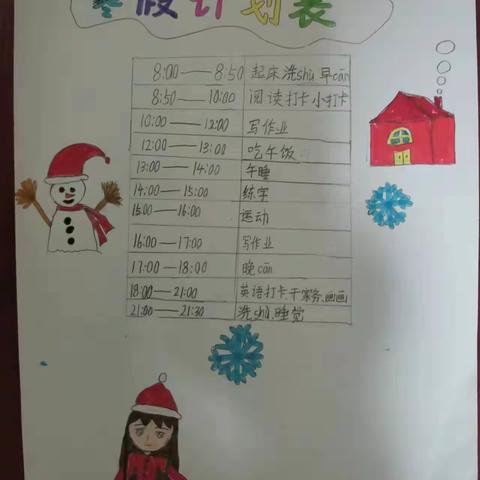 寒假计划表
8:00——8:50 起床洗shù早cān
8:50——10:00 阅读打卡小打卡
10:00——12:00 写作业
12:00——13:00 吃午饭
13:00——14:00 午睡
14:00——15:00 练字
15:00——16:00 运动
16:00——17:00 写作业
17:00——18:00 晚cān
18:00——21:00 英语打卡、干家务、画画
21:00——21:30 洗shù、睡觉